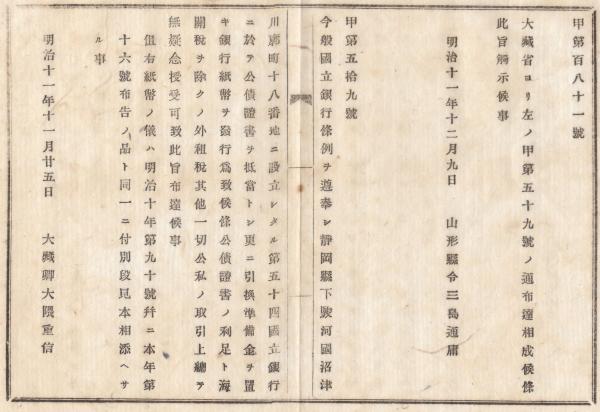 甲第百八十一號
大藏省ヨリ左ノ甲第五十九號ノ通布達相成候條
此旨觸示候事
明治十一年十二月九日　山形縣令三島通庸
甲第五拾九號
今般國立銀行條例ヲ遵奉シ靜岡縣下駿河國沼津
川廓町十八番地ニ設立シタル第五十四國立銀行
ニ於テ公債證書ヲ抵當トシ更ニ引換準備金ヲ置
キ銀行紙幣ヲ發行爲致候條公債證書ノ利足ト海
關稅ヲ除クノ外租稅其他一切公私ノ取引上總テ
無疑念授受可致此旨布達候事
但右紙幣ノ儀ハ明治十年第九十號幷ニ本年第
十六號布告ノ品ト同一ニ付別段見本相添ヘサ
ル事
明治十一年十一月廿五日　大藏卿大隈重信